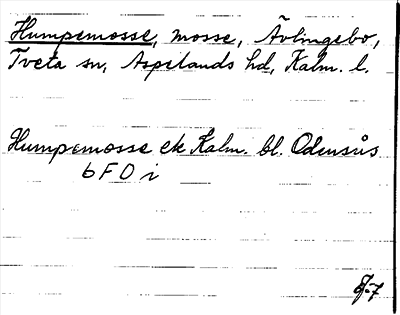 Humpemosse, mosse, Ävlingebo,
Tveta sn, Aspelands hd, Kalm. l.
Humpemosse ek Kalm. bl. Odensås
6 F 0 i